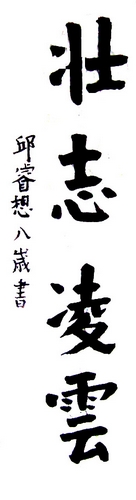 壯志凌雲
邱睿想八歲書